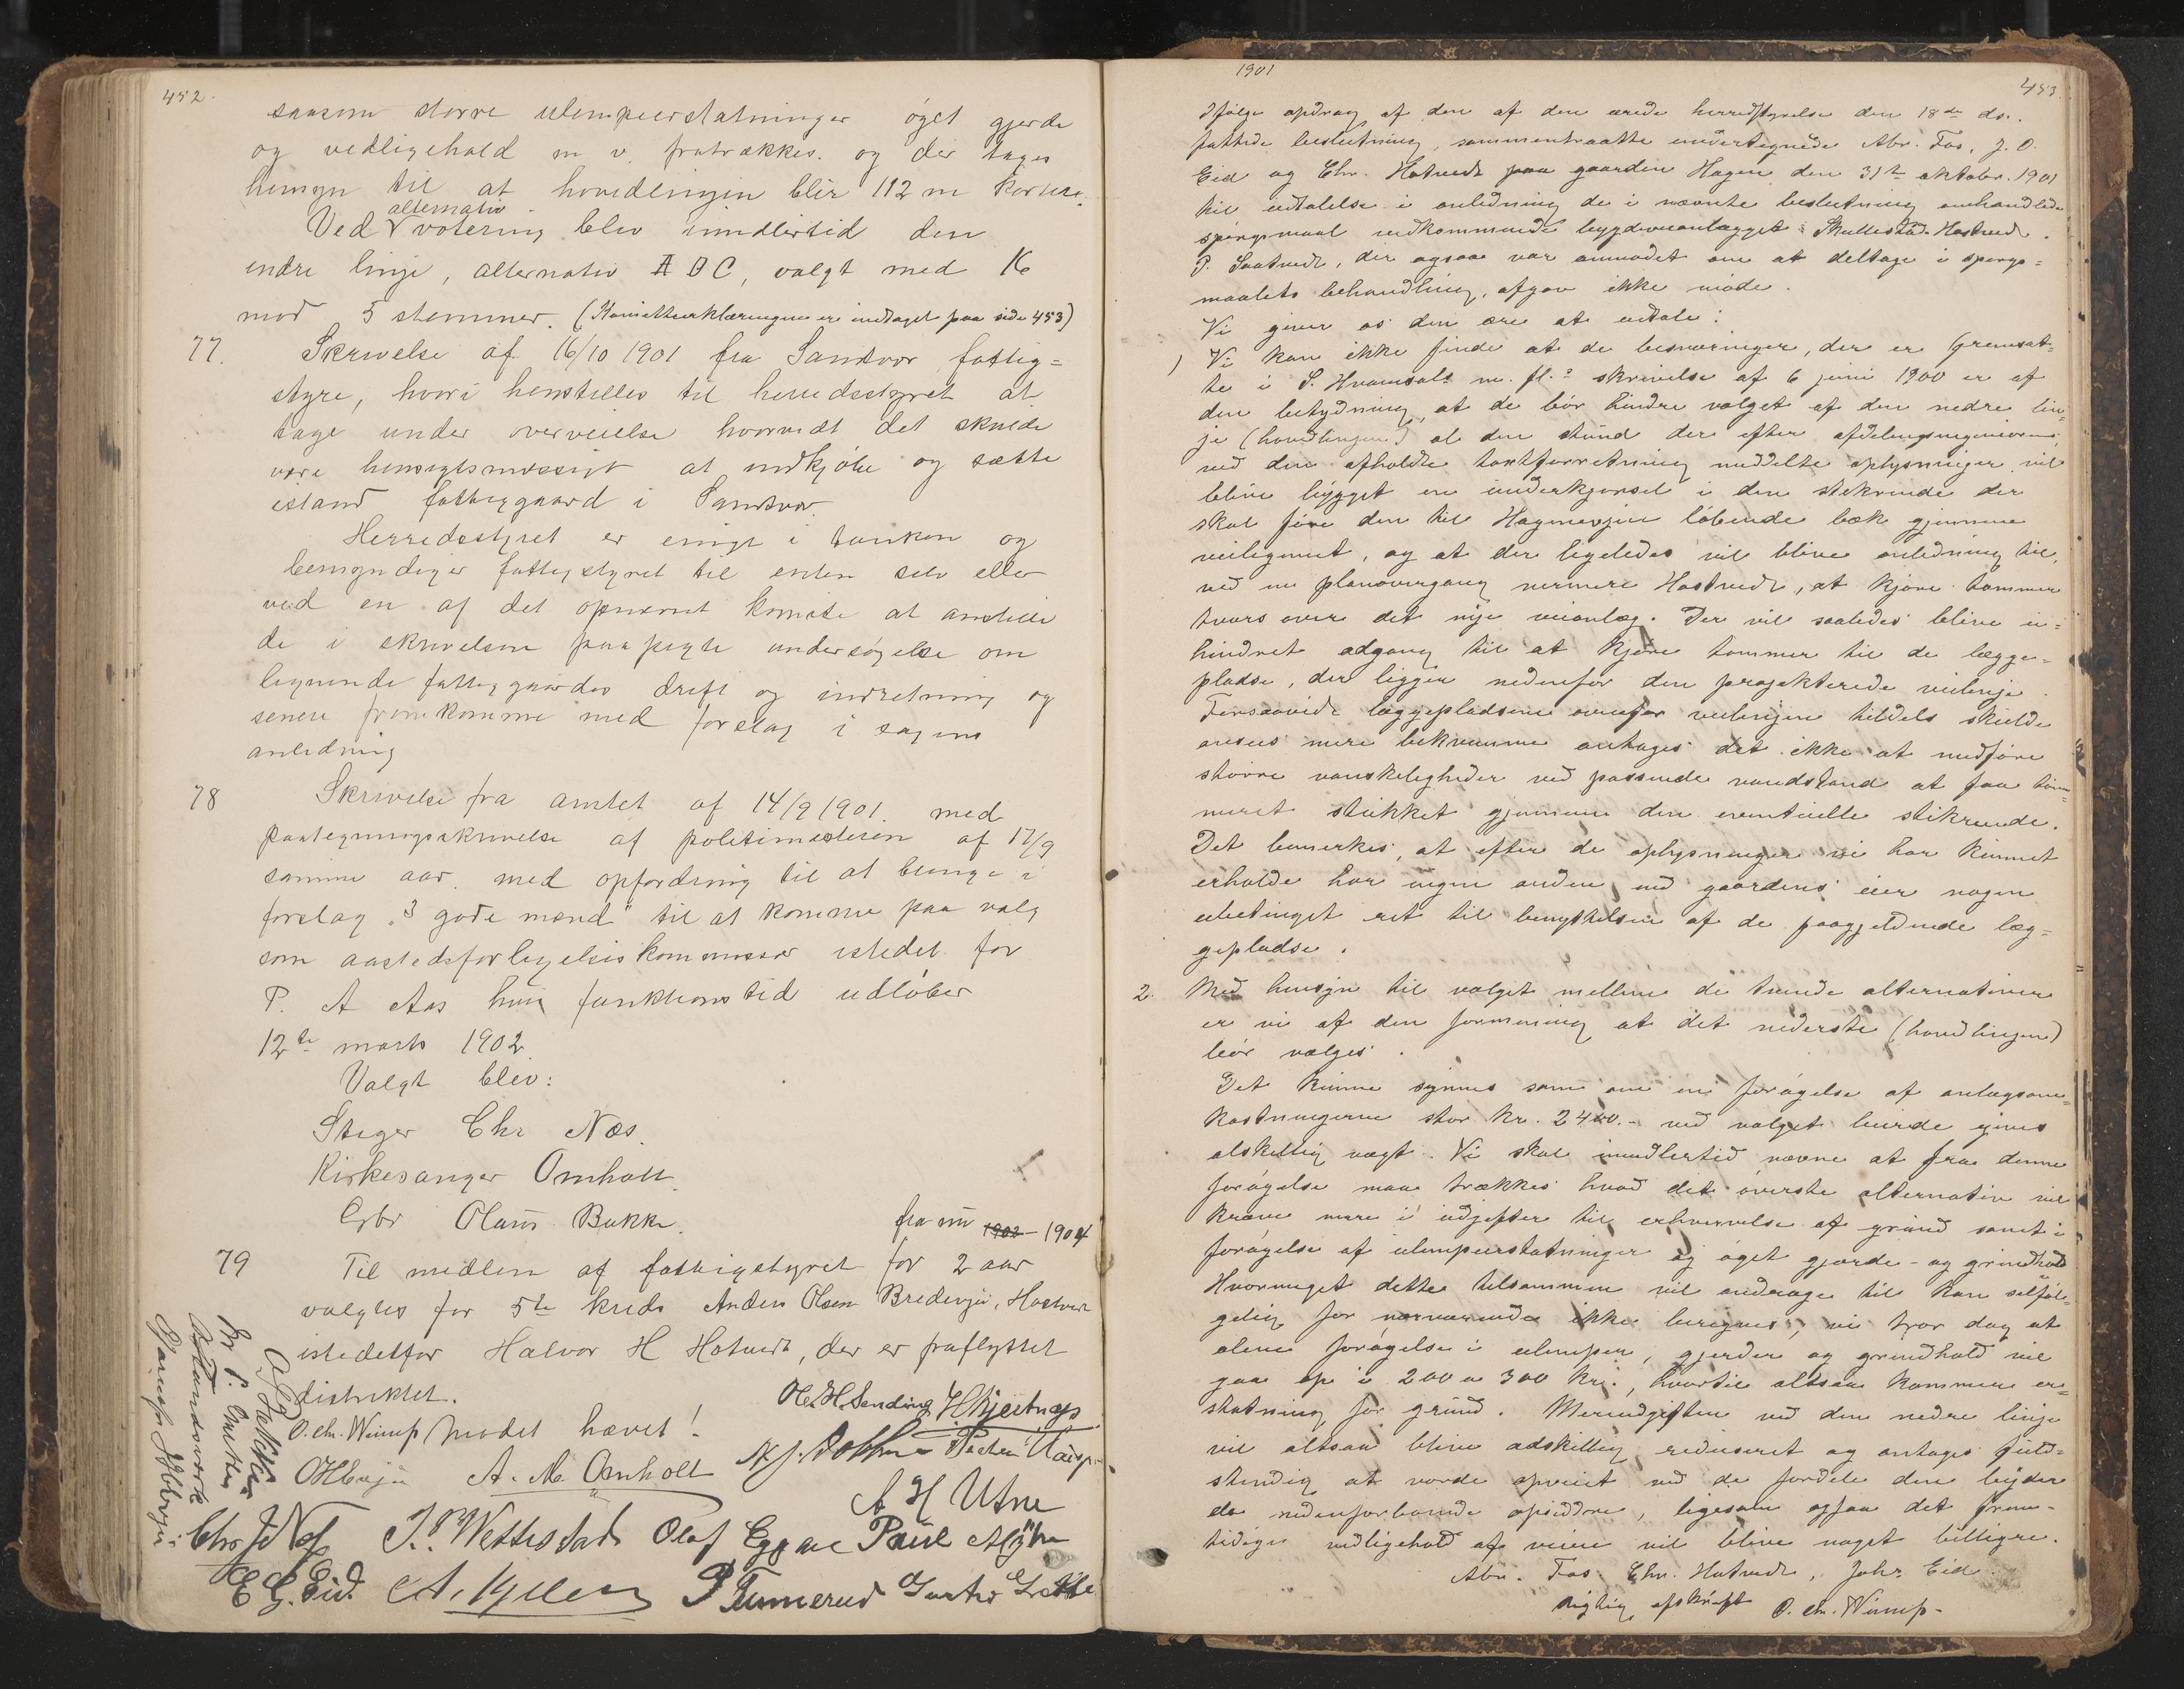 452.
saasom større ulempeerstatninger øget gjerde
og vedligehold m v. fratrækkes. og der tages
hensyn til at hovedlinjen blir 112 m kortere.
Ved alternativ votering blev imidlertid den
endre linje, alternativ A B C, valgt med 16
mod 5 stemmer. (Komitteerklæringen er indtaget paa side 453)
77. Skrivelse af 16/10 1901 fra Sandvær fattig=
styre, hvori henstilles til herredsstyret at
tage under overveielse hvorvidt det skulde
være hensigtsmæssigt at indkjøbe og sætte
istand fattiggaard i Sandvær.
Herredsstyret er enigt i tanken og
bemyndiger fattigstyret til enten selv eller
ved en af det opnævnt komite at anstille
de i skrivelsen paapegte undersøgelse om
lignende fattiggaardes drift og indretning og
senere fremkomme med forslag i sagens
anledning
78 Skrivelse fra amtet af 14/9 1901. med
paategningsskrivelse af politimesteren af 17/9
samme aar. med opfordring til at bringe i
forslag "3 gode mænd" til at komme paa valg
som aastedsforligelseskommissær istedet for
P. A Aas hvis funktionstid udløber
12te marts 1902.
Valgt blev:
Stiger Chr Næs.
Kirkesanger Omholt.
Gbr Olaus Bakke.
fra nu 1902 - 1904
79 Til medlem af fattigstyret for 2 aar
valgtes for 5te kreds Anders Olsen Bredevjen, Hostvedt
istedetfor Halvor H Hotvedt, der er fraflyttet
distriktet.
O. Chr. Wiimp Mødet hævet!
Ole H. Sending H Hjertnæs
A. M. Omholt
A H Utne
Chr Jd Næs J. P. Wettestad Olaf Eggare Paul
E G. Eid. A. Kjellen P Tumerud Gustav
1901
453.
Ifølge opdrag af den af den ærede herredstyrelse den 18de ds.
fattede beslutning, sammentraatte undertegnede Abr. Fos, J. O.
Eid og Chr. Hotvedt paa gaarden Hagen den 31te oktober 1901
til udtalelse i anledning de i nævnte beslutning omhandlede
spørgsmaal vedkommende bygdeveianlægget Skullestad-Hostvedt.
P. Saatvedt, der ogsaa var anmodet om at deltage i spørgs=
maalets behandling, afgav ikke møde.
Vi giver os den ære at udtale:
1 Vi kan ikke finde at de besværinger, der er fremsat=
te i S. Hvamsals m. fl.s skrivelse af 6 juni 1900 er af
den betydning, at de bør hindre valget af den nedre lin=
je (hovedlinjen) al den stund der efter afdelingsingeniørens
ved den afholdte taxtforretning meddelte oplysninger vil
blive bygget en underkjørsel i den stikrende der
skal føre den til Hagenevjen løbende bæk gjennem
veilegemet, og at der ligeledes vil blive anledning til,
ved en planovergang nærmere Hostvedt, at kjøre tømmer
tvers over det nye veianlæg. Der vil saaledes blive u=
hindret adgang til at kjøre tømmer til de lægge=
pladse, der ligger nedenfor den projekterede veilinje.
Forsaavidt læggepladsene ovenfor veilinjen tildels skulde
ansees mere bekvemme antages det ikke at medføre
større vanskeligheder ved passende vandstand at faa tøm=
meret stukket gjennem den eventuelle stikrende.
Det bemerkes, at efter de oplysninger vi har kunnet
erholde har ingen anden end gaardens eier nogen
ubetinget ret til benyttelsen af de paagjeldende læg=
gepladse.
2. Med hensyn til valget mellem de tvende alternativer
er vi af den formening at det nederste (hovedlinjen)
bør vælges.
Det kunne synnes som om en forøgelse af anlægsom=
kostningerne stor kr. 2400.- ved valget burde gives
adskillig vægt. Vi skal imidlertid nævne at fra denne
forøgelse maa trækkes hvad det øverste alternativ vil
kræve mere i udgifter til erhvervelse af grund samt i
forøgelse af ulempeerstatninger og øget gjærde- og grindhold
Hvormeget dette tilsammen vil andrage til kan selføl=
gelig for nærværende ikke beregnes, vi tror dog at
alene forøgelse i ulemper, gjerder og grindhold vil
gaa op i 200 a 300 kr., hvortil altsaa kommer er=
statning for grund. Merudgiften ved den nedre linje
vil altsaa blive adskillig reduseret og antages fuld=
stendig at vorde opveiet ved de fordele den byder
de nedenforboende opsiddere, ligesom ogsaa det frem=
tidige vedligehold af veien vil blive noget billigere.
Abr. Fos. Chr. Hotvedt, Johs. Eid.
Rigtig afskrift O. Chr. Wiimp-